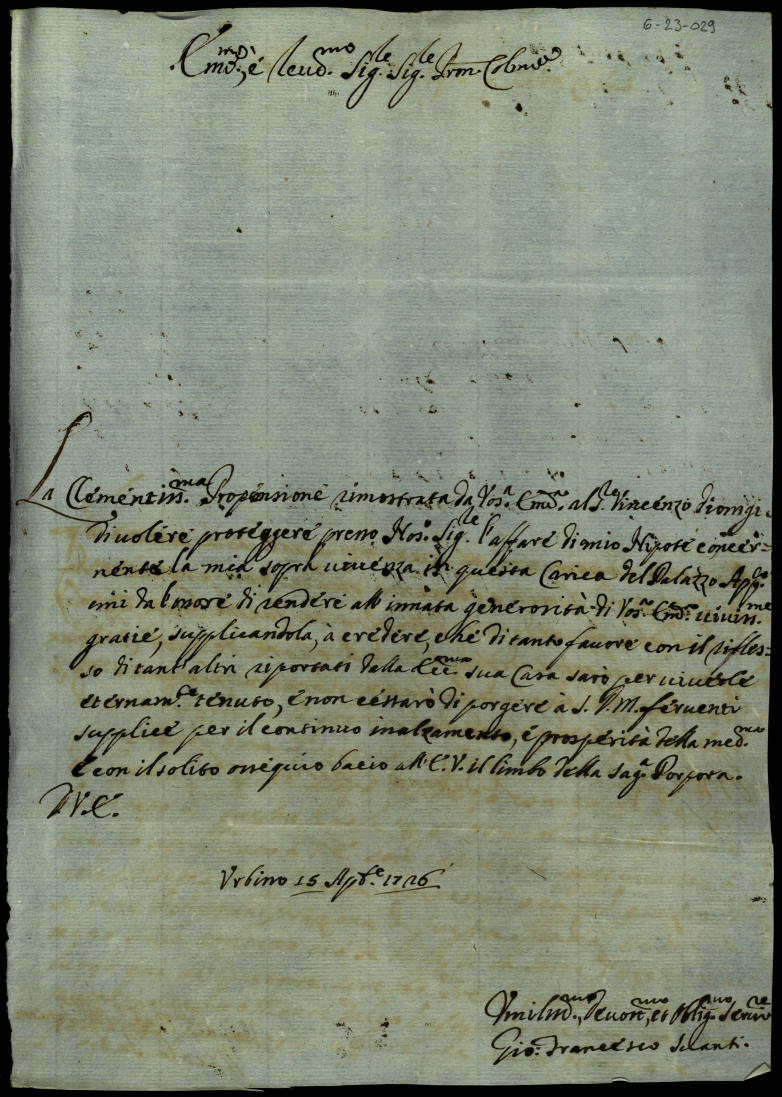 6-23-029
Em̃o, e Reud.mo Sig.re Sig.re Pron Colmo
La Clementiss.ma Propensione rimostrata da Vos.a Em.a al S.r Vincenzo Dionigi
di uolere proteggere presso Nos.o Sig.re l'affare di mio Nipote concer=
nente la mia sopra uiuenza in questa Carica del Palazzo App.co
mi dà l'onore di rendere all'innata generosità di Vos.a Em.a uiuiss.me
gratie, supplicandola, à credere, che di tanto fauore con il rifles=
so di tant'altri riportati dalla Ecc.ma sua Casa sarò per uiuerle
eternam.te tenuto, e non cessarò di porgere à S. D. M. feruenti
supplice per il continuo inalzamento, e prosperità della med.ma
e con il solito ossequio bacio all'E. V. il limbo della sag.a Porpora.
D V. E.
Urbino 15 Apłe 1726
Vmiliss.mo, Deuot.mo, et Oblig.mo Seruire
Gio: Francesco